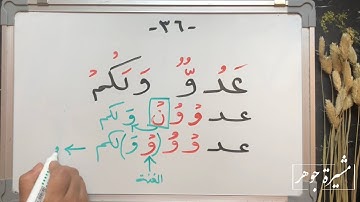 -٣٦-
عَدُوٌّ وَلَكُمْ
عد وْ وُ نْ وَ لكم
عد وْ وُ (وْ وَ) لكم ←
الغنة
مشيرة جوهر